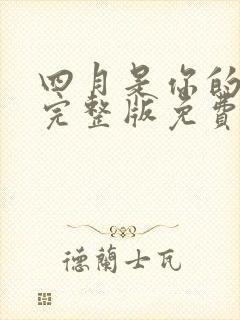 四月是你的
完整版免費
德蘭士瓦